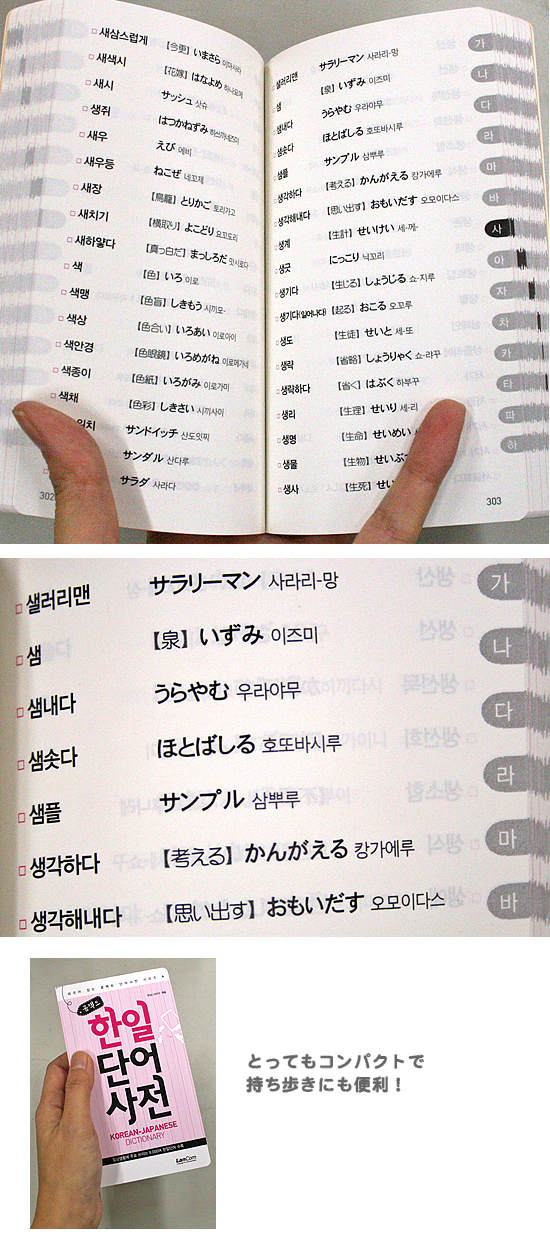 새삼스럽게 【今更】いまさら 이마사라
새색시 【花嫁】はなよめ 하나요메
새시 サッシュ 삿슈
생쥐 はつかねずみ 하쓰까네즈미
새우 えび 에비
새우등 ねこぜ 네꼬제
새장 【鳥籠】とりかご 토리가고
새치기 【横取り】よこどり 요꼬도리
새하얗다 【真っ白だ】まっしろだ 맛시로다
색 【色】いろ 이로
색맹 【色盲】しきもう 시끼모-
색상 【色合い】いろあい 이로아이
색안경 【色眼鏡】いろめがね 이로메가네
색종이 【色紙】いろがみ 이로가미
색채 【色彩】しきさい 시끼사이
위치 サンドイッチ 산도잇찌
サンダル 산다루
サラダ 사라다
302
샐러리맨 サラリーマン 사라리-망
샘 【泉】いずみ 이즈미
샘내다 うらやむ 우라야무
샘솟다 ほとばしる 호또바시루
샘플 サンプル 삼뿌루
생각하다 【考える】かんがえる 캉가에루
생각해내다 【思い出す】おもいだす 오모이다스
생계 【生計】せいけい 세-께-
생긋 にっこり 닉꼬리
생기다 【生じる】しょうじる 쇼-지루
생기다(일어나다) 【起る】おこる 오꼬루
생도 【生徒】せいと 세-또
생략 【省略】しょうりゃく 쇼-랴꾸
생략하다 【省く】はぶく 하부꾸
생리 【生理】せいり 세-리
생명 【生命】せいめい
생물 【生物】せいぶ
생사 【生死】せい
303
가
나
다
라
마
바
사
아
자
차
카
타
파
하
샐러리맨 サラリーマン 사라리-망
샘 【泉】いずみ 이즈미
샘내다 うらやむ 우라야무
샘솟다 ほとばしる 호또바시루
샘플 サンプル 삼뿌루
생각하다 【考える】かんがえる 캉가에루
생각해내다 【思い出す】おもいだす 오모이다스
가
나
다
라
마
바
콤팩트
한일
단어
사전
KOREAN-JAPANESE
DICTIONARY
LanCom
とってもコンパクトで
持ち歩きにも便利！